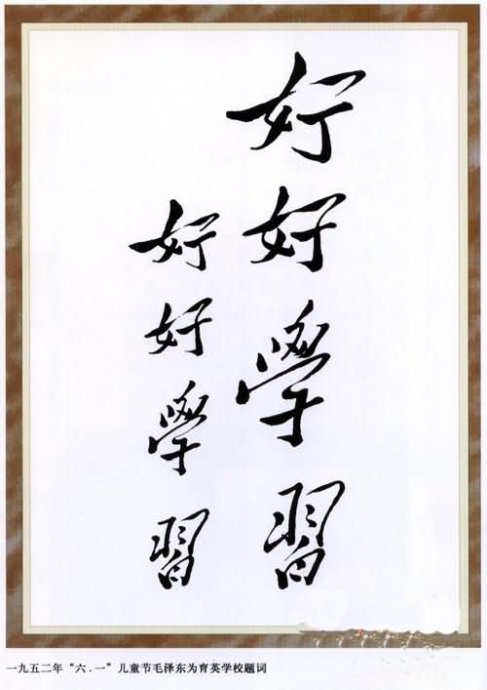 好好學習
好好學習
一九五二年“六.一”儿童节毛泽东为育英学校题词